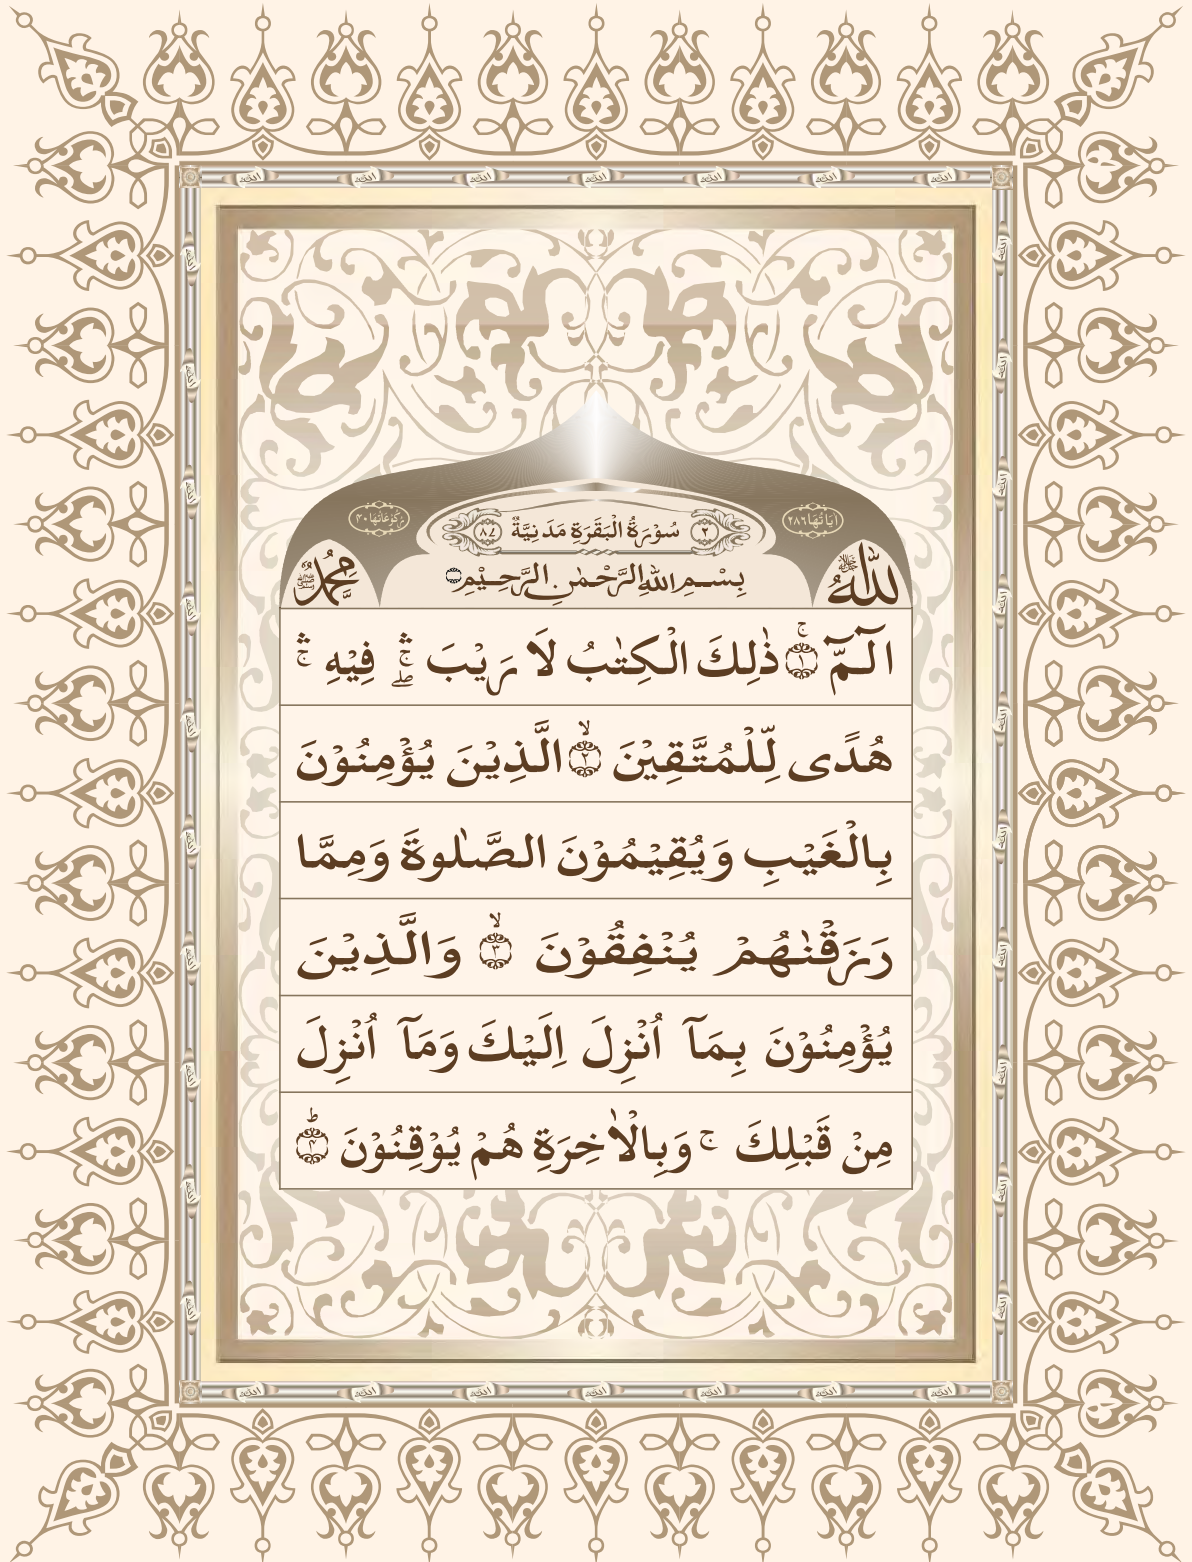 سُوْرَةُ الْبَقَرَةِ مَدَنِيَّةٌ
اٰيَاتُهَا ٢٨٦
رُكُوْعَاتُهَا ٤٠
٢
٨٧
بِسْمِ اللّٰهِ الرَّحْمٰنِ الرَّحِيْمِ
اللّٰهُ
مُحَمَّد
الٓمّٓ ۚ﴿١﴾ ذٰلِكَ الْكِتٰبُ لَا رَيْبَ ۛۚۖ فِيْهِ ۛۚ
هُدًى لِّلْمُتَّقِيْنَ ۙ﴿٢﴾ الَّذِيْنَ يُؤْمِنُوْنَ
بِالْغَيْبِ وَيُقِيْمُوْنَ الصَّلٰوةَ وَمِمَّا
رَزَقْنٰهُمْ يُنْفِقُوْنَ ۙ﴿٣﴾ وَالَّذِيْنَ
يُؤْمِنُوْنَ بِمَآ اُنْزِلَ اِلَيْكَ وَمَآ اُنْزِلَ
مِنْ قَبْلِكَ ۚ وَبِالْاٰخِرَةِ هُمْ يُوْقِنُوْنَ ؕ﴿٤﴾